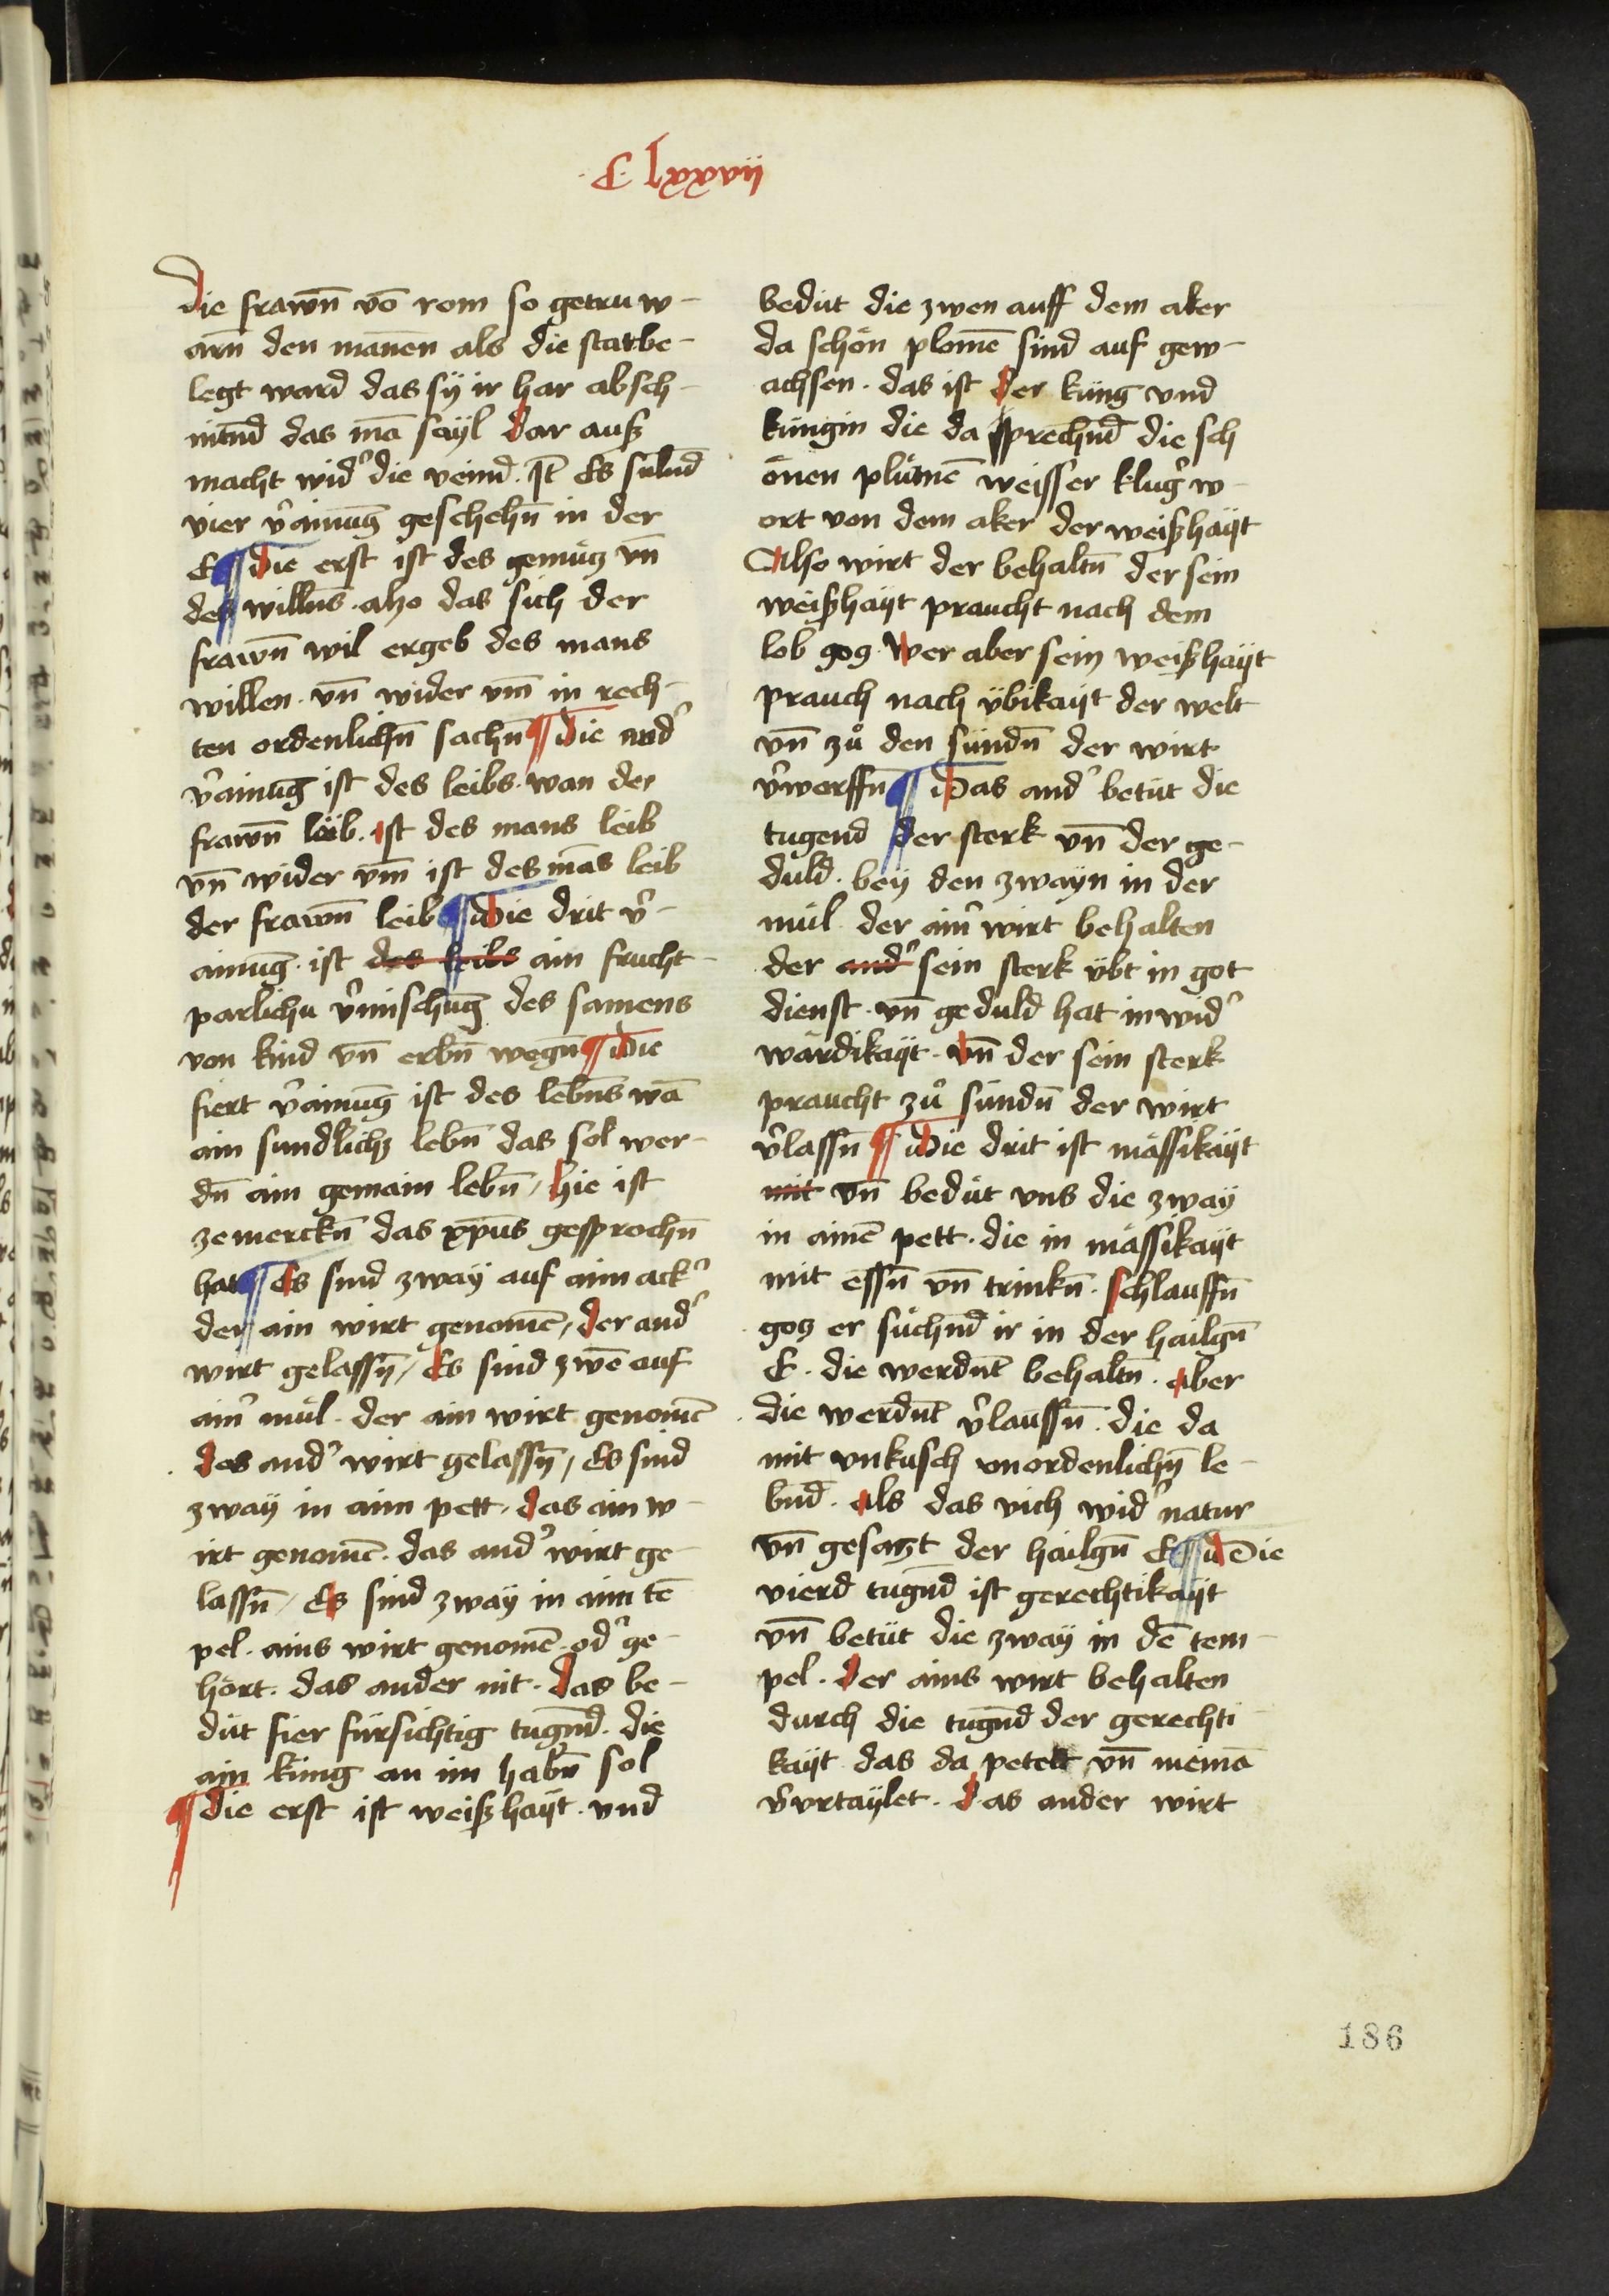 C lxxvii
die frawn̄ vō rom so getru w-
arn̄ den manen als die stat be-
legt ward das sÿ ir har absch-
nitn̄d das mā saÿl dar auß
macht wid' die veind. It̄ Es sulnd̄
vier v'ainūg geschehn̄ in der
E ¶ die erst ist des gemütz vn̄
des willns̄. also das sich der
frawn̄ wil ergeb des mans
willen. vn̄ wider vm̄ in rech-
ten ordenlichn̄ sachn̄ ¶ die and'
v'ainūg ist des leibs. wan der
frawn̄ leib. ist des mans leib
vn̄ wider vm̄ ist des mās leib
der frawn̄ leib ¶ die drit v'-
ainūg. ist des leibs ain frucht-
parlichu v'mischūg des samens
von kind vn̄ erbn̄ wegn̄ ¶ die
fiert v'ainūg ist des lebn̄s wā
ain sundlichz lebn̄ das sol wer-
dn̄ ain gemain lebn̄ / hie ist
zemerckn̄ das xp̄us gesprochn̄
hat ¶ Es sind zwaÿ auf aim ack'
der ain wirt genomē, der and'
wirt gelassn̄ / Es sind zwē auf
ain' mül. der ain wirt genomē
des and' wirt gelassn̄ / Es sind
zwaÿ in aim pett. das ain w-
irt genomē. das and' wirt ge-
lassn̄ / Es sind zwaÿ in aim tē
pel. ains wirt genomē. od' ge-
hört. das ander nit. das be-
düt fier fürsichtig tugn̄d. die
ain küng an im habn̄ sol
¶ die erst ist weißhaÿt. vnd
bedüt die zwen auff dem aker
da schön plomē sind auf gew-
achsen. das ist der küng vnd
küngin die da sprechn̄d die sch
önen plümē weisser klug' w-
ort von dem aker der weißhaÿt
Also wirt der behaltn̄ der sein
weißhaÿt praucht nach dem
lob gotz. Wer aber sein weißhaÿt
prauch nach übikaÿt der welt
vn̄ zů den sündn̄ der wirt
v'worffn̄ ¶ Das and' betüt die
tugend der sterk vn̄ der ge-
duld. beÿ den zwaÿn in der
mül der ain' wirt behalten
der and' sein sterk übt in got
dienst. vn̄ geduld hat in wid'
wärdikaÿt. vn̄ der sein sterk
praucht zů sündn̄ der wirt
v'lassn̄ ¶ Die drit ist mässikaÿt
mit vn̄ bedüt vns die zwaÿ
in ainē pett. die in mässikaÿt
mit essn̄ vn̄ trinkn̄. schlauffn̄
gotz er süchnd̄ ir in der hailgn̄
E. die werdnt̄ behaltn̄. aber
die werdnt̄ v'laussn̄. die da
mit vnkusch vnordenlichn̄ le-
bnd̄. als das vich wid' natur
vn̄ gesatzt der hailgn̄ E ¶ Die
vierd tugn̄d ist gerechtikaÿt
vn̄ betüt die zwaÿ in dē tem-
pel. der ains wirt behalten
durch die tugn̄d der gerechti
kaÿt das da petett vn̄ niemā
v'vrtaÿlet. das ander wirt
186